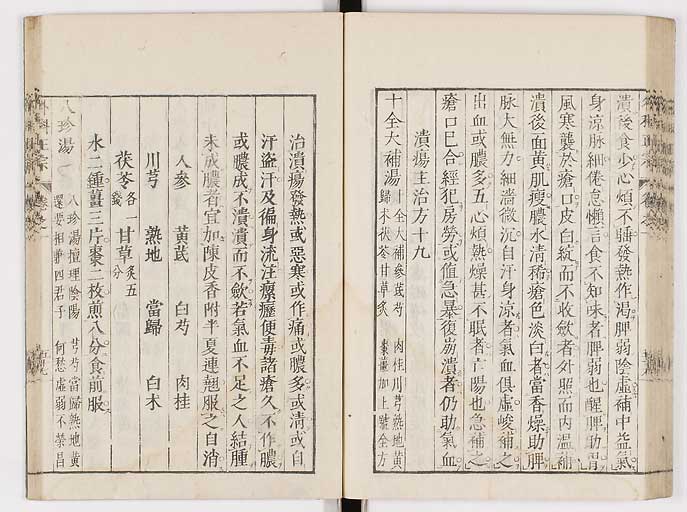 潰後食少心煩不睡發熱作渴脾弱陰虛補中益氣
身涼脉細倦怠懶言食不知味者脾弱也醒脾助胃
風寒襲於瘡口皮白綻而不收斂者外照而內溫補
潰後面黃肌瘦膿水清稀瘡色淡白者當香燥助脾
脉大無力細濇微沉自汗身涼者氣血俱虛峻補之
出血或膿多五心煩熱燥甚不眠者亡陽也急補之
瘡口巳合經犯房勞或值急暴復崩潰者仍助氣血
潰瘍主治方十九
十全大補湯
十全大補參芪芍
肉桂川芎熟地黃
歸术茯苓甘草炙
棗薑加上號全方
治潰瘍發熱或惡寒或作痛或膿多或清或自
汗盜汗及徧身流注瘰癧便毒諸瘡久不作膿
或膿成不潰潰而不斂若氣血不足之人結腫
未成膿者宜加陳皮香附半夏連翹服之自消
人參
黃芪
白芍
肉桂
川芎
熟地
當歸
白术
茯苓各一錢
甘草炙五分
水二鍾薑三片棗二枚煎八分食前服
八珍湯
八珍湯擅理陰陽
芎芍當歸熟地黃
還要相聯四君子
何愁虛弱不榮昌
外科正宗